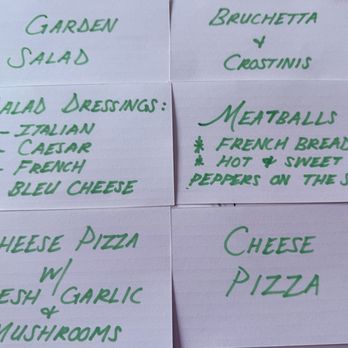 GARDEN
SALAD
BRUCHETTA
&
CROSTINIS
ALAD DRESSINGS:
- ITALIAN
- CAESAR
- FRENCH
BLEU CHEESE
MEATBALLS
* FRENCH BREAD
* HOT & SWEET
PEPPERS ON THE S
HEESE PIZZA
W/
ESH GARLIC
&
MUSHROOMS
CHEESE
PIZZA